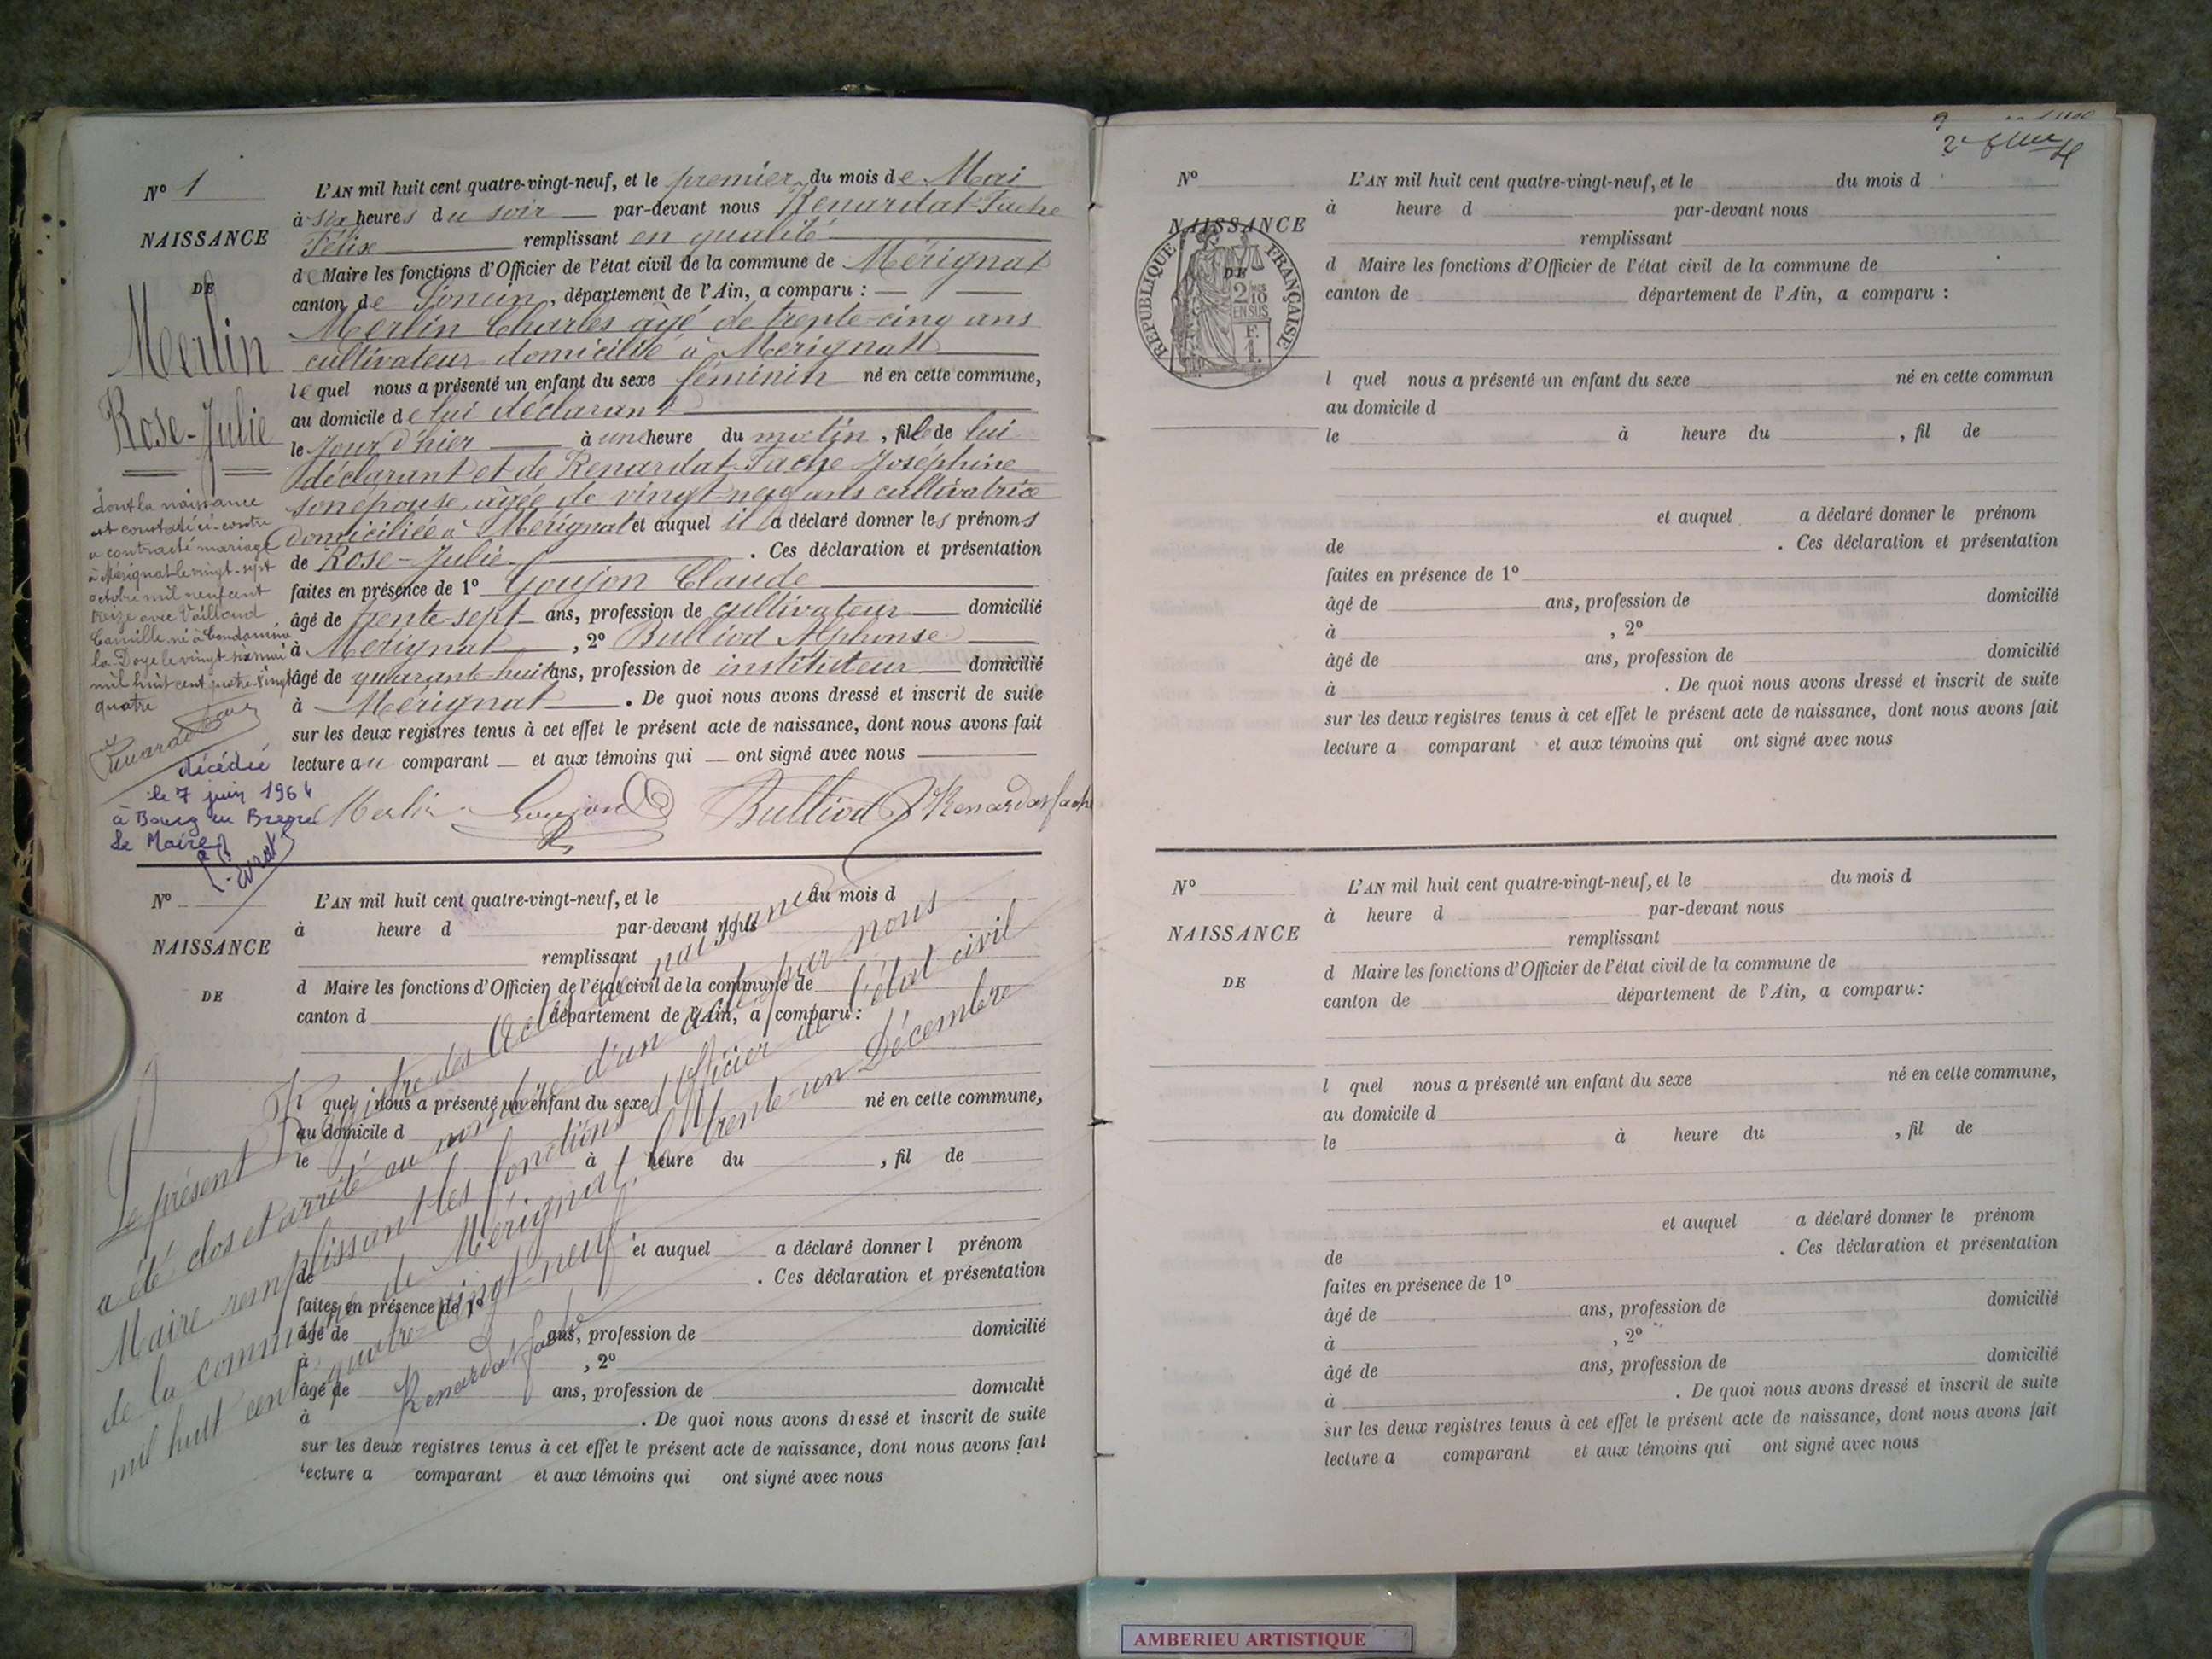 N° 1
NAISSANCE
DE
Merlin
Rose-Julie
dont la naissance
est constatée ci-contre
a contracté mariage
à Mérignat le vingt-sept
octobre mil neuf cent
treize avec Vailloud
Camille né à Condamine
la Doye le vingt-six mai
mil huit cent quatre-vingt
quatre
décédée
le 7 juin 1964
à Bourg en Bresse
Le Maire
L'AN mil huit cent quatre-vingt-neuf, et le premier du mois de Mai
à six heures du soir par-devant nous Renardat-Fache
Félix remplissant en qualité
de Maire les fonctions d'Officier de l'état civil de la commune de Mérignat
canton de Poncin, département de l'Ain, a comparu :
Merlin Charles âgé de trente-cinq ans
cultivateur domicilié à Mérignat
lequel nous a présenté un enfant du sexe féminin né en cette commune,
au domicile de lui déclarant
le jour d'hier à une heure du matin, fille de lui
déclarant et de Renardat-Fache Joséphine
son épouse, âgée de vingt-neuf ans cultivatrice
domiciliée à Mérignat et auquel il a déclaré donner les prénoms
de Rose-Julie. Ces déclaration et présentation
faites en présence de 1° Goujon Claude
âgé de trente-sept ans, profession de cultivateur domicilié
à Mérignat, 2° Bulliod Alphonse
âgé de quarante-huit ans, profession de instituteur domicilié
à Mérignat. De quoi nous avons dressé et inscrit de suite
sur les deux registres tenus à cet effet le présent acte de naissance, dont nous avons fait
lecture au comparant et aux témoins qui ont signé avec nous
Merlin Goujon Bulliod Renardat fache
N°
NAISSANCE
DE
L'AN mil huit cent quatre-vingt-neuf, et le du mois d
à heure d par-devant nous
remplissant
d Maire les fonctions d'Officier de l'état civil de la commune de
canton d département de l'Ain, a comparu :
l quel nous a présenté un enfant du sexe né en cette commune,
au domicile d
le à heure du , fil de
et auquel a déclaré donner l prénom
de . Ces déclaration et présentation
faites en présence de 1°
âgé de ans, profession de domicilié
à , 2°
âgé de ans, profession de domicilié
à . De quoi nous avons dressé et inscrit de suite
sur les deux registres tenus à cet effet le présent acte de naissance, dont nous avons fait
lecture a comparant et aux témoins qui ont signé avec nous
Le présent Registre des Actes de naissance
a été clos et arrêté au nombre d'un acte par nous
Maire remplissant les fonctions d'Officier de l'état civil
de la commune de Mérignat, le trente-un Décembre
mil huit cent quatre-vingt-neuf
Renardat fache
N°
NAISSANCE
DE
RÉPUBLIQUE FRANÇAISE
2/10
EN SUS
F.
1.
L'AN mil huit cent quatre-vingt-neuf, et le du mois d
à heure d par-devant nous
remplissant
d Maire les fonctions d'Officier de l'état civil de la commune de
canton de département de l'Ain, a comparu :
l quel nous a présenté un enfant du sexe né en cette commun
au domicile d
le à heure du , fil de
et auquel a déclaré donner le prénom
de . Ces déclaration et présentation
faites en présence de 1°
âgé de ans, profession de domicilié
à , 2°
âgé de ans, profession de domicilié
à . De quoi nous avons dressé et inscrit de suite
sur les deux registres tenus à cet effet le présent acte de naissance, dont nous avons fait
lecture a comparant et aux témoins qui ont signé avec nous
N°
NAISSANCE
DE
L'AN mil huit cent quatre-vingt-neuf, et le du mois d
à heure d par-devant nous
remplissant
d Maire les fonctions d'Officier de l'état civil de la commune de
canton de département de l'Ain, a comparu:
l quel nous a présenté un enfant du sexe né en cette commune,
au domicile d
le à heure du , fil de
et auquel a déclaré donner le prénom
de . Ces déclaration et présentation
faites en présence de 1°
âgé de ans, profession de domicilié
à , 2°
âgé de ans, profession de domicilié
à . De quoi nous avons dressé et inscrit de suite
sur les deux registres tenus à cet effet le présent acte de naissance, dont nous avons fait
lecture a comparant et aux témoins qui ont signé avec nous
AMBERIEU ARTISTIQUE